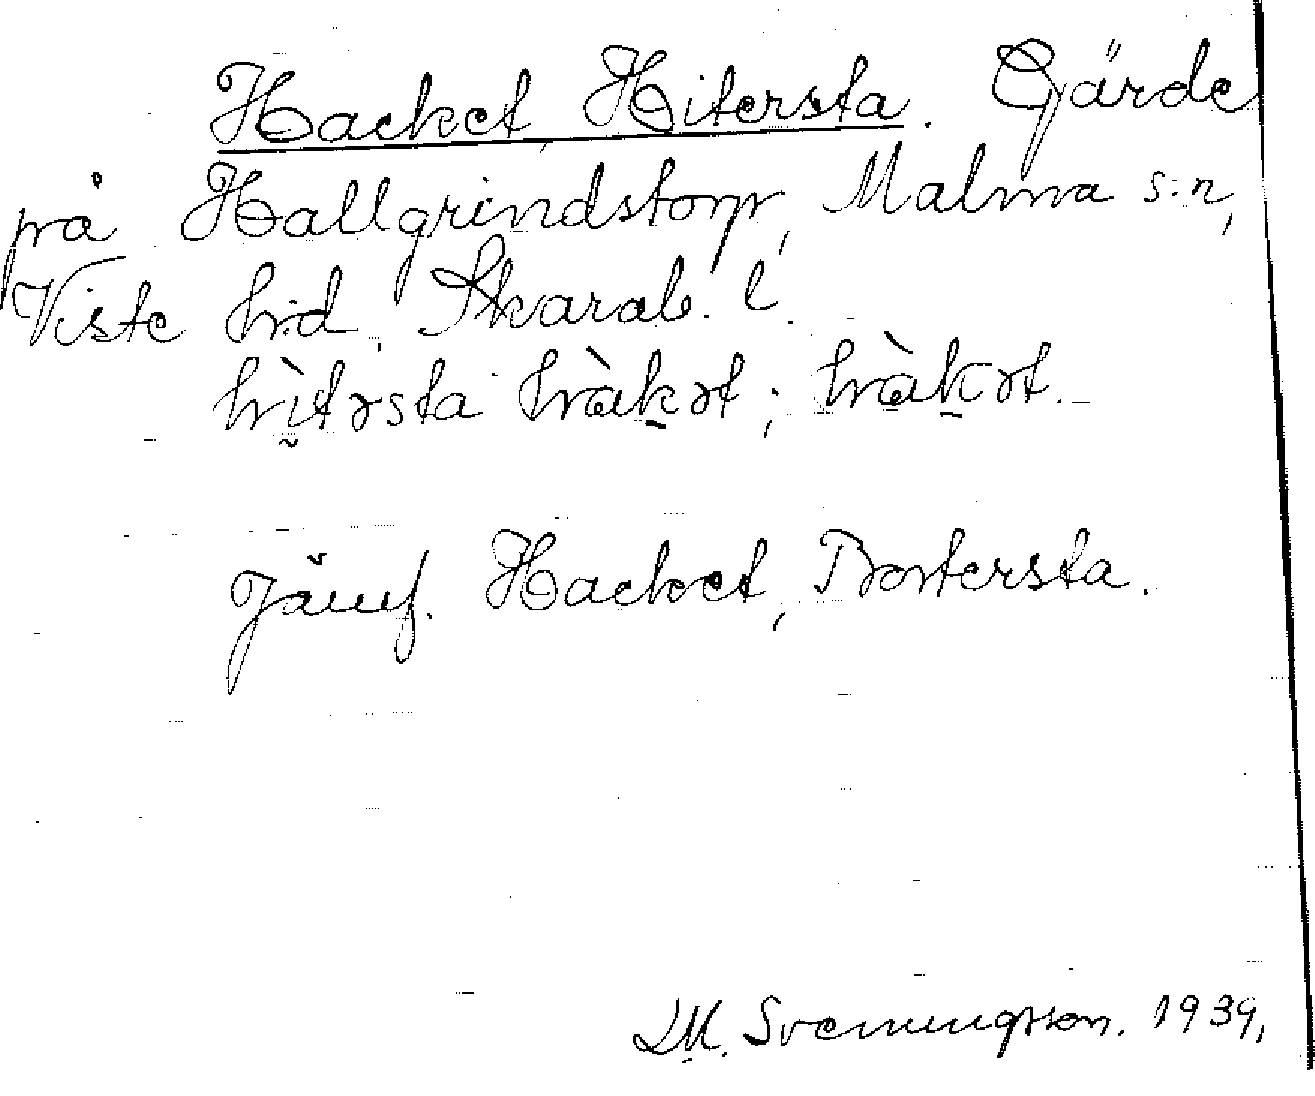 Hacket, Hitersta. Gärde
på Hallgrindstorp, Malma s:n,
Viste hd, Skarab. l.
hìtəsta hàkət; hàkət.
Jämf. Hacket, Bortersta.
D.M. Svenningsson. 1939.